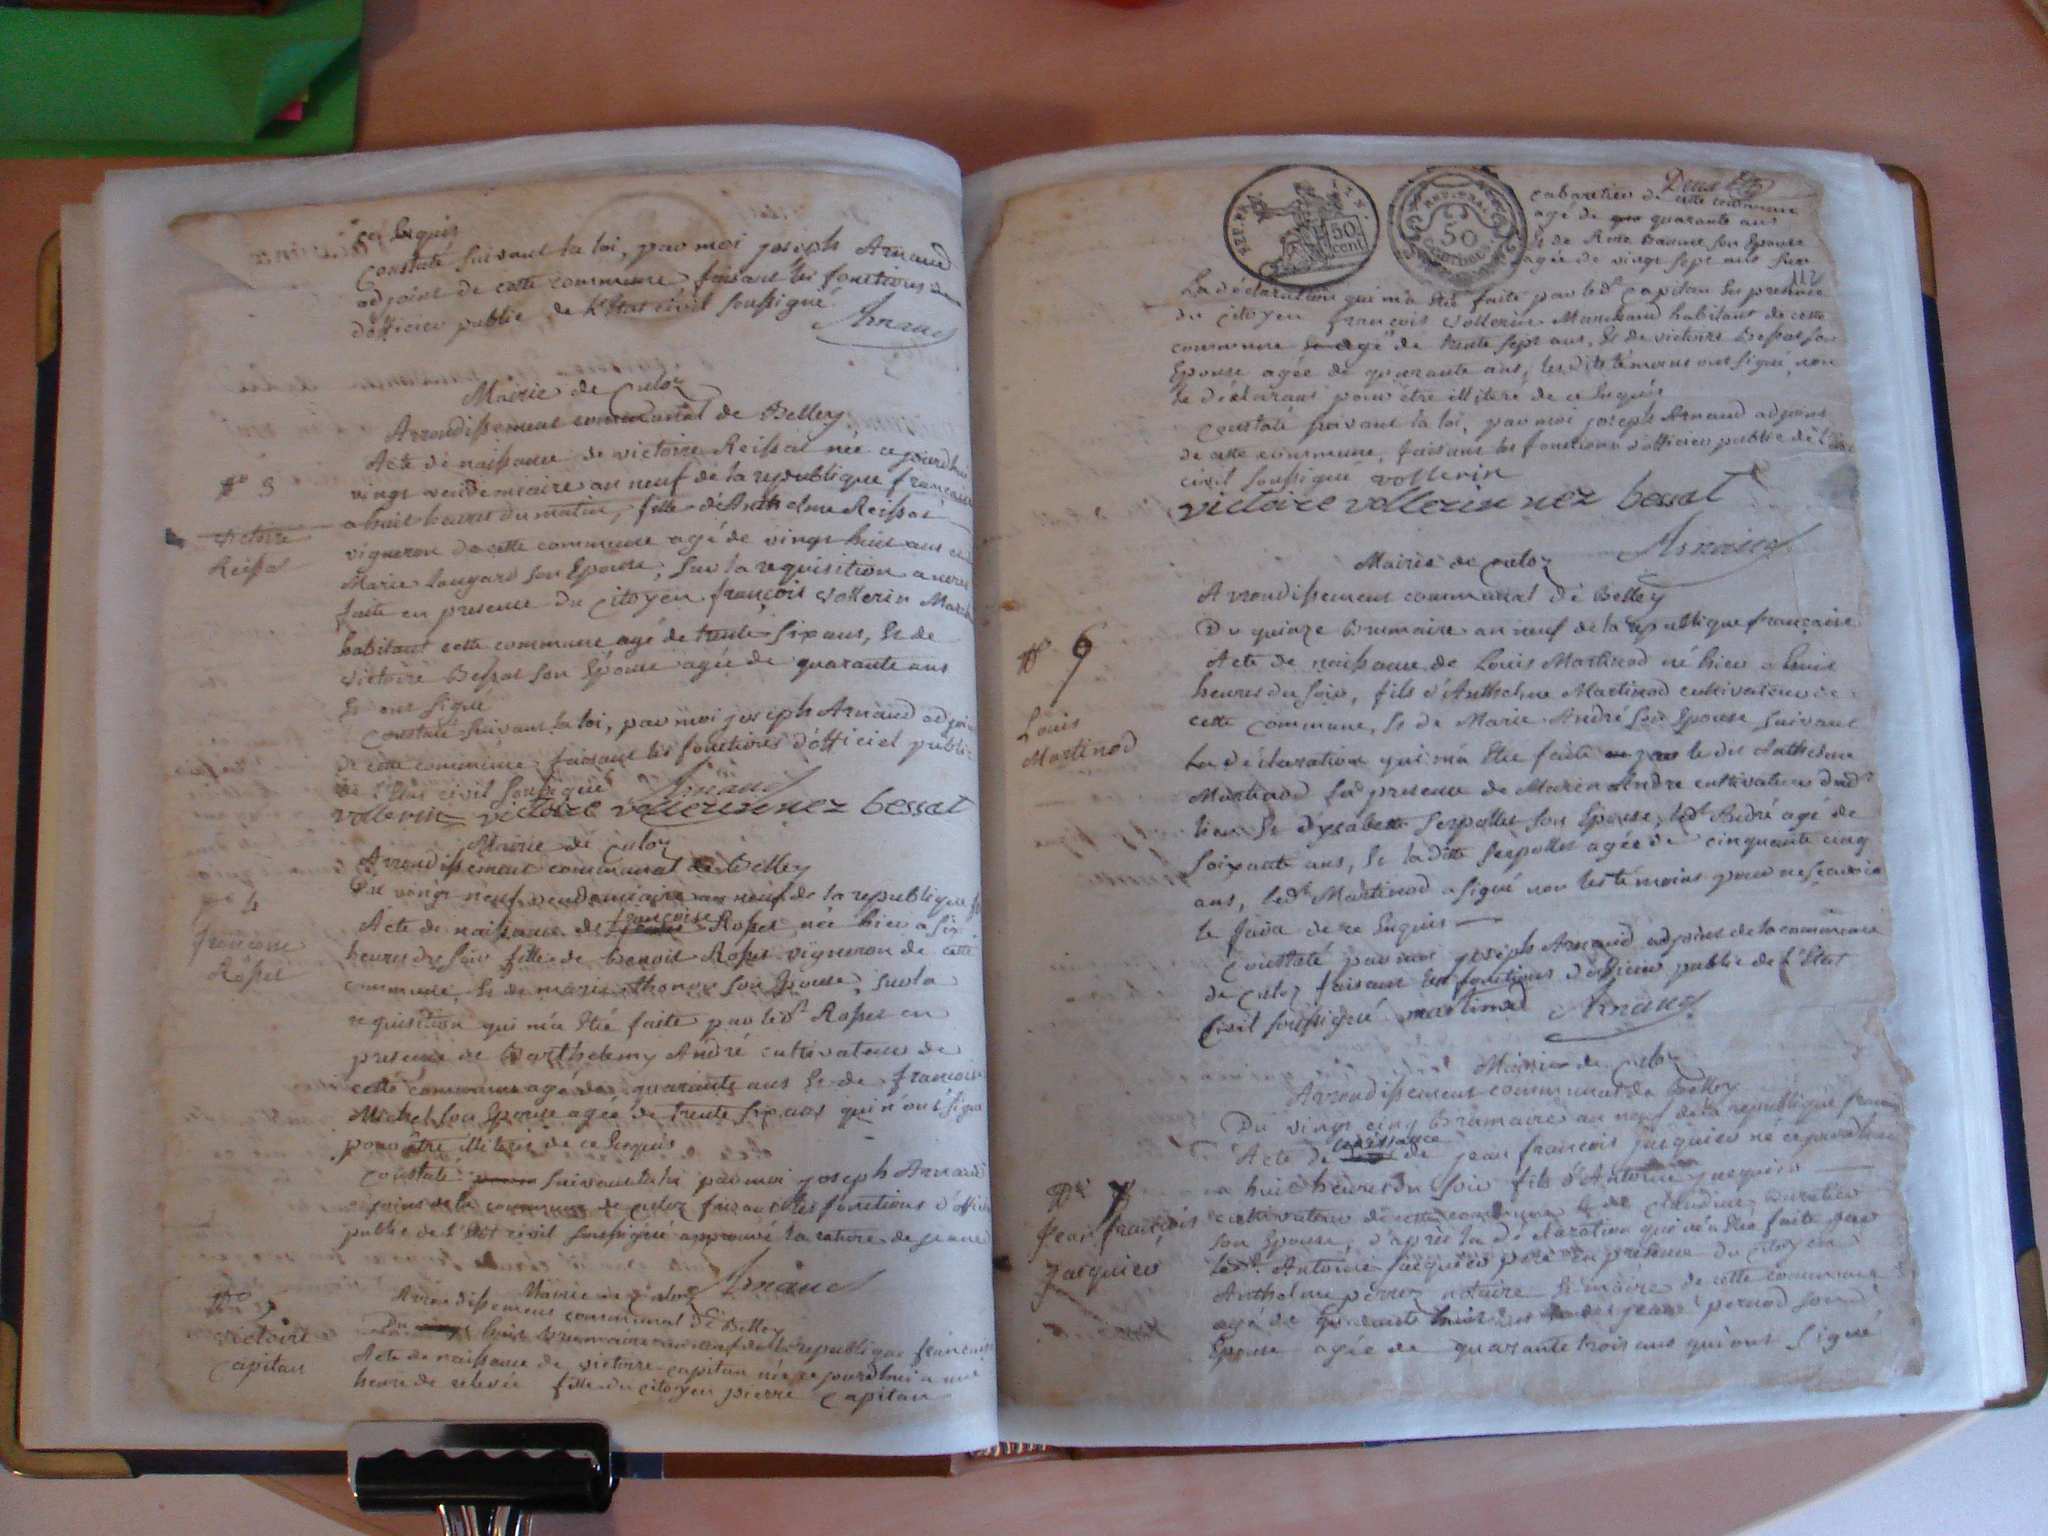 ce Enquis
Constaté suivant la loi, par moi joseph Arnaud
adjoint de cette commune faisant les fonctions
d'officier public de l'Etat civil soussigné
Arnaud
Mairie de Culoz
Arrondissement communal de Belley
N° 3
victoire
Reissat
Acte de naissance de victoire Reissat née ce jourd'hui
vingt vendemiaire an neuf de la republique francaise
a huit heures du matin, fille d'Anthelme Reissat
vigneron de cette commune agé de vingt huit ans et
Marie son Epouse, sur la requisition a
faite en presence du Citoyen françois vollerin March
habitant cette commune agé de trente six ans, Et de
victoire Bessat son Epouse agée de quarante ans
Et ont signé
Constaté suivant la loi, par moi joseph Arnaud adjoint
de cette commune faisant les fonctions d'officier public
de l'Etat civil soussigné Arnaud
vollerin victoire vollerin nez bessat
Mairie de Culoz
Arrondissement communal de Belley
Du vingt neuf vendemiaire an neuf de la republique
N° 4
francoise
Rosset
Acte de naissance de francoise Rosset née hier a six
heures du soir fille de benoit Rosset vigneron de cette
commune, Et de marie son Epouse, sur la
requisition qui m'a Eté faite par led.t Rosset en
presence de Barthelemy André cultivateur de
cette commune agé de quarante ans Et de francoise
Michel son Epouse agée de trente six ans qui n'ont signé
pour être illiteres de ce Enquis
Constaté suivant la loi par moi joseph Arnaud
adjoint de la commune de Culoz faisant les fonctions d'offici
public de l'Etat civil soussigné approuvé la rature de
Arnaud
Mairie de Culoz
Arrondissement communal de Belley
N° 5
victoire
Capitan
Du huit Brumaire an neuf de la republique francaise
Acte de naissance de victoire Capitan née ce jourdhui a une
heure de relevée fille du citoyen pierre Capitan
REP. FRA.
50
cent
50
cabaretier de cette commune
agé de quarante ans
Et de Rose Baune son Epouse
agée de vingt sept ans sur
112
La déclaration qui m'a Eté faite par led.t Capitan En presence
du Citoyen françois vollerin Marchand habitant de cette
commune agé de trente sept ans, Et de victoire Bessat son
Epouse agée de quarante ans, les dits témoins ont signé, non
le déclarant pour être illitere de ce Enquis
Constaté suivant la loi, par moi joseph Arnaud adjoint
de cette commune, faisant les fonctions d'officier public de l'Etat
civil soussigné vollerin
victoire vollerin nez bessat
Arnaud
Mairie de Culoz
Arrondissement communal de Belley
Du quinze Brumaire an neuf de la republique francaise
N° 6
Louis
Martinod
Acte de naissance de Louis Martinod né hier a huit
heures du soir, fils d'Anthelme Martinod cultivateur de
cette commune, Et de Marie André son Epouse suivant
la déclaration qui m'a Eté faite par le dit Anthelme
Martinod En presence de André cultivateur dud.t
lieu Et d'ysabeau Serpollet son Epouse, led.t André agé de
soixante ans, Et la ditte Serpollet agée de cinquante cinq
ans, led.t Martinod a signé non les témoins pour ne scavoir
le faire de ce Enquis
Constaté par moi joseph Arnaud adjoint de la commune
de Culoz faisant les fonctions d'officier public de l'Etat
Civil soussigné martinod Arnaud
Mairie de Culoz
Arrondissement communal de Belley
Du vingt cinq Brumaire an neuf de la republique
N° 7
Jean françois
Jacquier
Acte de naissance de jean françois jacquier né ce jourdhui
a huit heures du soir fils d'Antoine jacquier
cultivateur de cette commune Et de Claudine
son Epouse, d'après la déclaration qui m'a Eté faite par
led.t Antoine jacquier père En présence du Citoyen
Anthelme notaire Et maire de cette commune
agé de quarante huit ans
Epouse agée de quarante trois ans qui ont signé